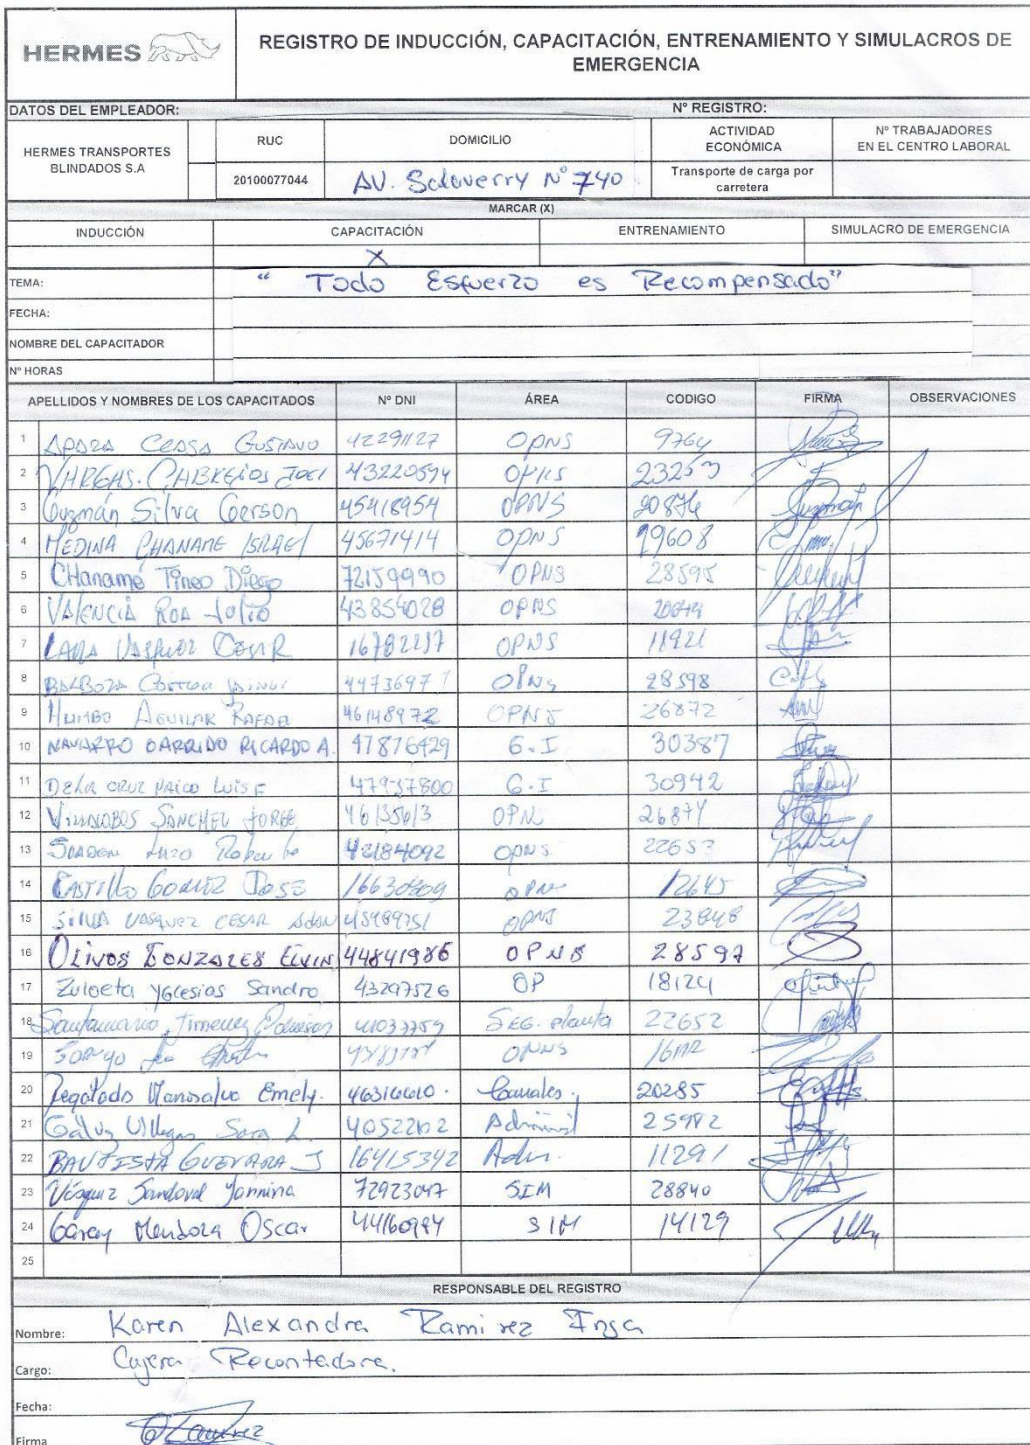 HERMES
REGISTRO DE INDUCCIÓN, CAPACITACIÓN, ENTRENAMIENTO Y SIMULACROS DE
EMERGENCIA
DATOS DEL EMPLEADOR: Nº REGISTRO:
HERMES TRANSPORTES BLINDADOS S.A RUC DOMICILIO ACTIVIDAD ECONÓMICA Nº TRABAJADORES EN EL CENTRO LABORAL
20100077044 AV. Salaverry Nº 740 Transporte de carga por carretera
MARCAR (X)
INDUCCIÓN CAPACITACIÓN ENTRENAMIENTO SIMULACRO DE EMERGENCIA
X
TEMA: "Todo Esfuerzo es Recompensado"
FECHA:
NOMBRE DEL CAPACITADOR
Nº HORAS
APELLIDOS Y NOMBRES DE LOS CAPACITADOS Nº DNI ÁREA CODIGO FIRMA OBSERVACIONES
1 APAZA CCASA GUSTAVO 42291127 OPNS 9764
2 VARGAS. CABREJOS JOEL OPNS
3 Guzmán Silva Gerson 45418954 OPNS
4 MEDINA CHANAME ISRAEL 45671414 OPNS 19608
5 CHaname Tineo Diego 72159990 OPNS 28595
6 VALENCIA ROA JULIO 43854028 OPNS
7 LARA VASQUEZ CESAR OPNS
8 BALBOZA OPNS 28598
9 HUMBO AGUILAR RAFAEL 46148972 OPNS 26872
10 NAVARRO GARRIDO RICARDO A. 47876429 G.I 30387
11 DE LA CRUZ LUIS F G.I 30942
12 VILLALOBOS SANCHEZ JORGE 46135613 OPN 26874
13 Roberto 42184092 OPNS 22653
14 CASTILLO GOMEZ JOSE 12645
15 SILVA VASQUEZ CESAR ADAN OPNS 23848
16 OLIVOS GONZALES ELVIN 44841986 OPNS 28597
17 Zuloeta Yglesias Sandro 43297526 OP 18124
18 Santamaria Jimenez SEG. planta 22652
19 OPNS
20 Regalado Manosalva Emely. 46316610. Canales. 20285
21 Galvez Villegas Sara L. Administ 25982
22 BAUTISTA GUEVARA J 16415342 Adm. 11291
23 Vásquez Sandoval Yannina 72923047 SIM 28840
24 Garay Mendoza Oscar 44160984 SIM 14129
25
RESPONSABLE DEL REGISTRO
Nombre: Karen Alexandra Ramirez Inga
Cargo: Cajera Recontadora.
Fecha:
Firma